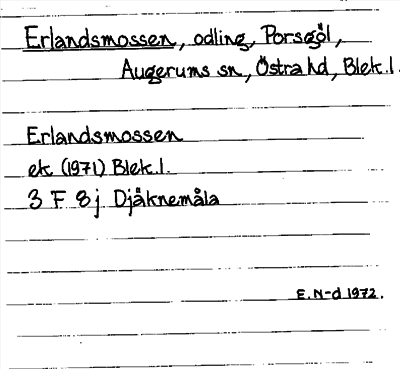 Erlandsmossen, odling, Porsgöl,
Augerums sn, Östra hd, Blek.l.
Erlandsmossen
ek. (1971) Blek.l.
3 F 8 j Djäknemåla
E. N-d 1972.